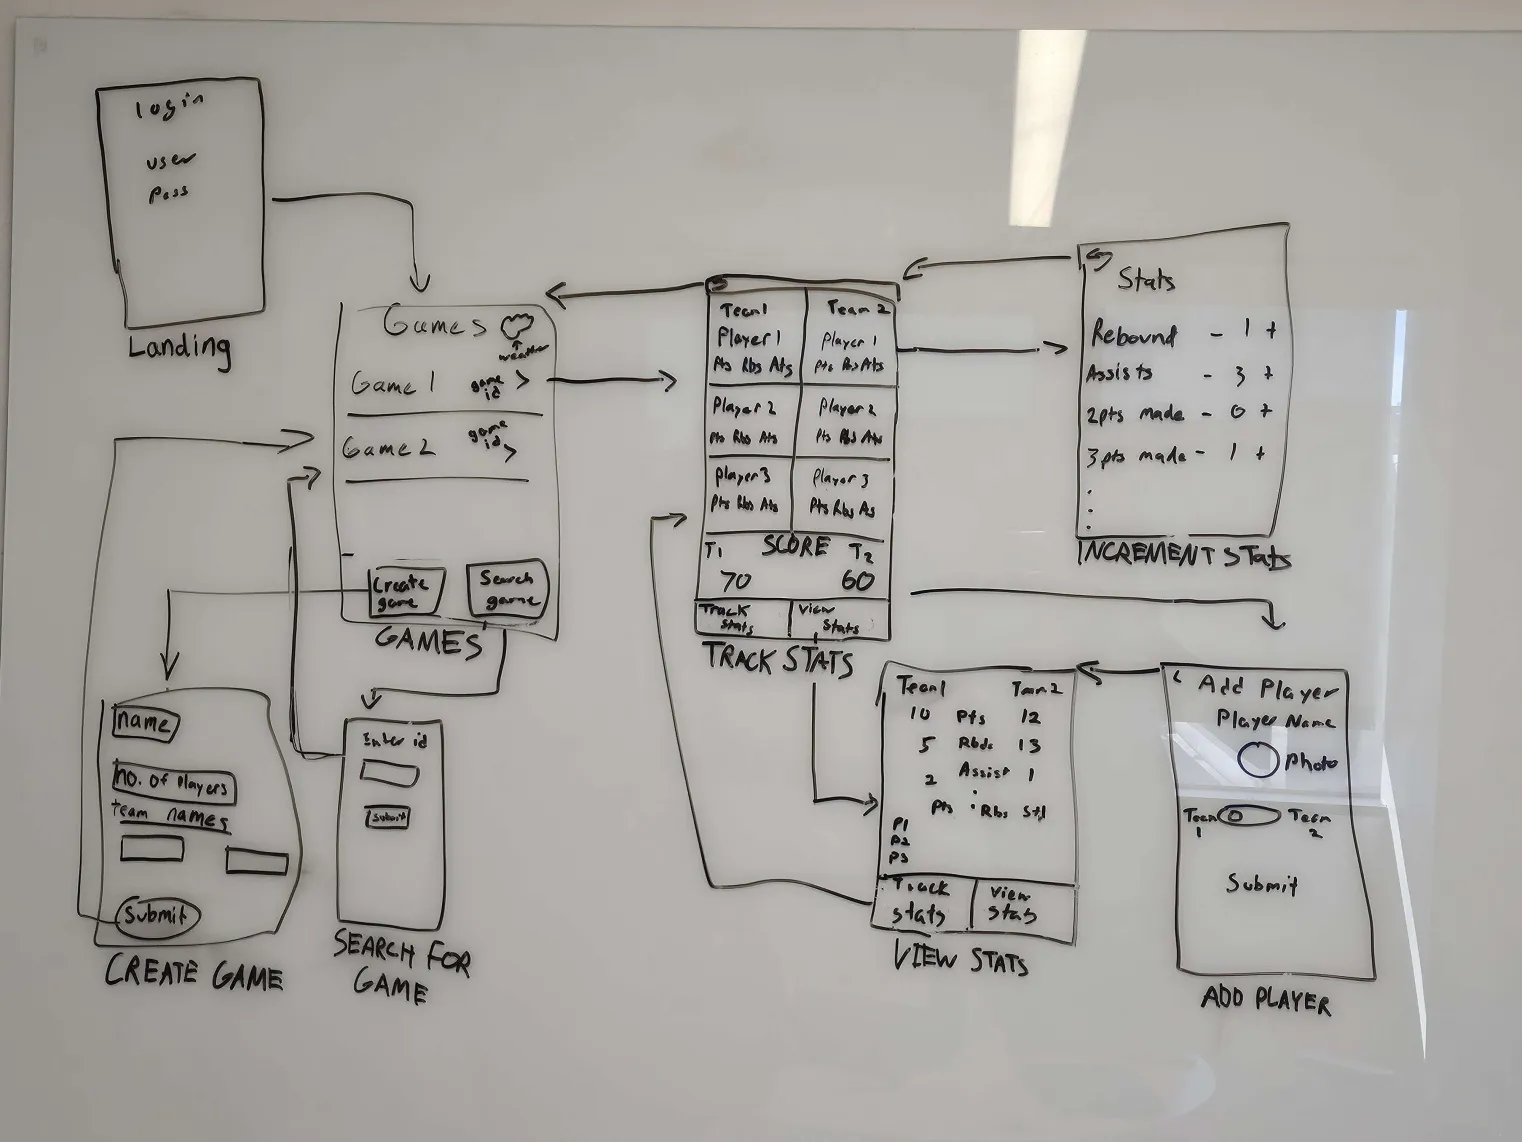 login
user
pass
Landing
Games
weather
Game 1 game id >
Game 2 game id >
Create game
Search game
GAMES
name
no. of Players
team names
Submit
CREATE GAME
Enter id
Submit
SEARCH FOR GAME
Team1 Team 2
Player 1 Player 1
Pts Rbs Ats Pts Rbs Ats
Player 2 Player 2
Pts Rbs Ats Pts Rbs Ats
Player 3 Player 3
Pts Rbs Ats Pts Rbs As
T1 SCORE T2
70 60
Track Stats View Stats
TRACK STATS
Stats
Rebound - 1 +
Assists - 3 +
2pts made - 0 +
3pts made - 1 +
INCREMENT STats
Team1 Team2
10 Pts 12
5 Rbds 13
2 Assist 1
Pts Rbs Stl
P1
P2
P3
Track Stats View Stats
VIEW STATS
< Add Player
Player Name
Photo
Team 1 Team 2
Submit
ADD PLAYER